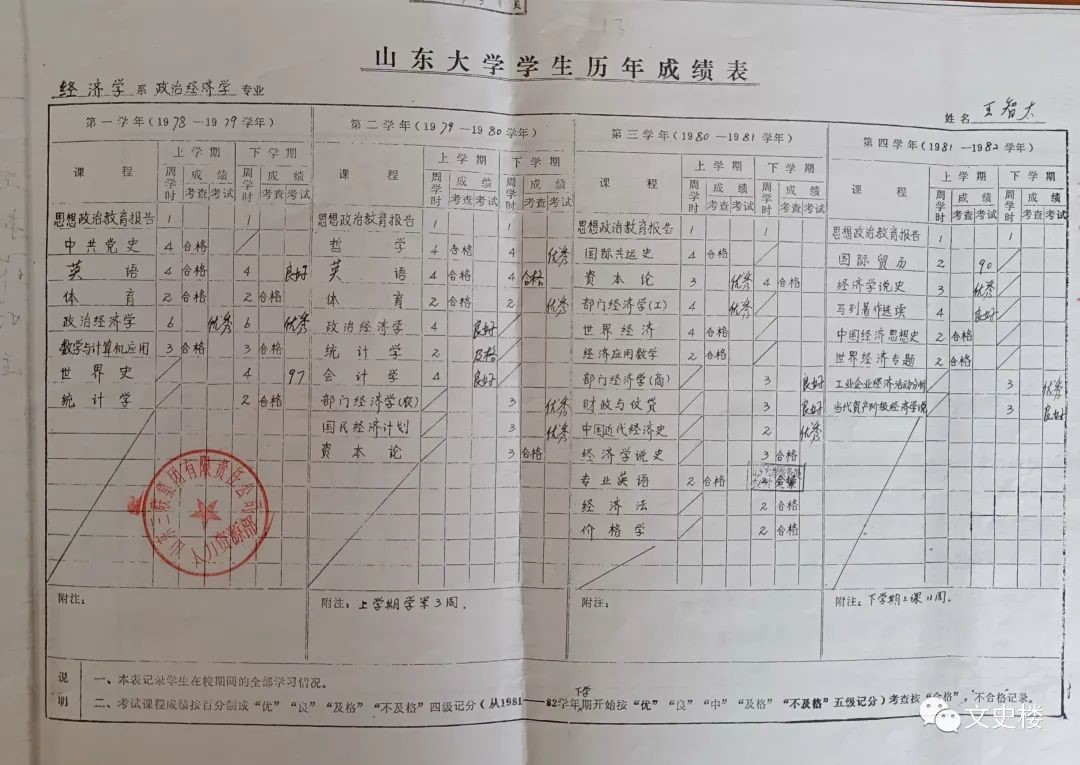 山东大学学生历年成绩表
经济学 系 政治经济学 专业
姓名 王智大
第一学年(1978—1979学年)
课程 上学期 下学期
周学时 成绩 周学时 成绩
考查 考试 考查 考试
思想政治教育报告 1 1
中共党史 4 合格
英语 4 合格 4 良好
体育 2 合格 2 合格
政治经济学 6 优秀 6 优秀
数学与计算机应用 3 合格 3 合格
世界史 4 97
统计学 2 合格
附注:
第二学年(1979—1980学年)
课程 上学期 下学期
周学时 成绩 周学时 成绩
考查 考试 考查 考试
思想政治教育报告 1 1
哲学 4 合格 4 优秀
英语 4 合格 4 合格
体育 2 合格 2 优秀
政治经济学 4 良好
统计学 2 及格
会计学 4 良好
部门经济学(农) 3 优秀
国民经济计划 3 优秀
资本论 3 合格
附注: 上学期学军3周.
第三学年(1980—1981学年)
课程 上学期 下学期
周学时 成绩 周学时 成绩
考查 考试 考查 考试
思想政治教育报告 1 1
国际共运史 4 合格
资本论 3 优秀 4 合格
部门经济学(工) 4 优秀
世界经济 4 合格
经济应用数学 2 合格
部门经济学(商) 3 良好
财政与信贷 3 良好
中国近代经济史 2 优秀
经济学说史 3 合格
专业英语 2 合格 2 合格
经济法 2 合格
价格学 2 合格
附注:
第四学年(1981—1982学年)
课程 上学期 下学期
周学时 成绩 周学时 成绩
考查 考试 考查 考试
思想政治教育报告 1 1
国际贸易 2 90
经济学说史 3 优秀
马列著作选读 4 良好
中国经济思想史 2 合格
世界经济专题 2 合格
工业企业经济活动分析 3 优秀
当代资产阶级经济学说 3 良好
附注: 下学期上课11周.
山东三联集团有限责任公司
说明
一、本表记录学生在校期间的全部学习情况。
二、考试课程成绩按百分制或“优”“良”“及格”“不及格”四级记分(从1981—82学年下学期开始按“优”“良”“中”“及格”“不及格”五级记分)考查按“合格”,不合格记录。
文史楼